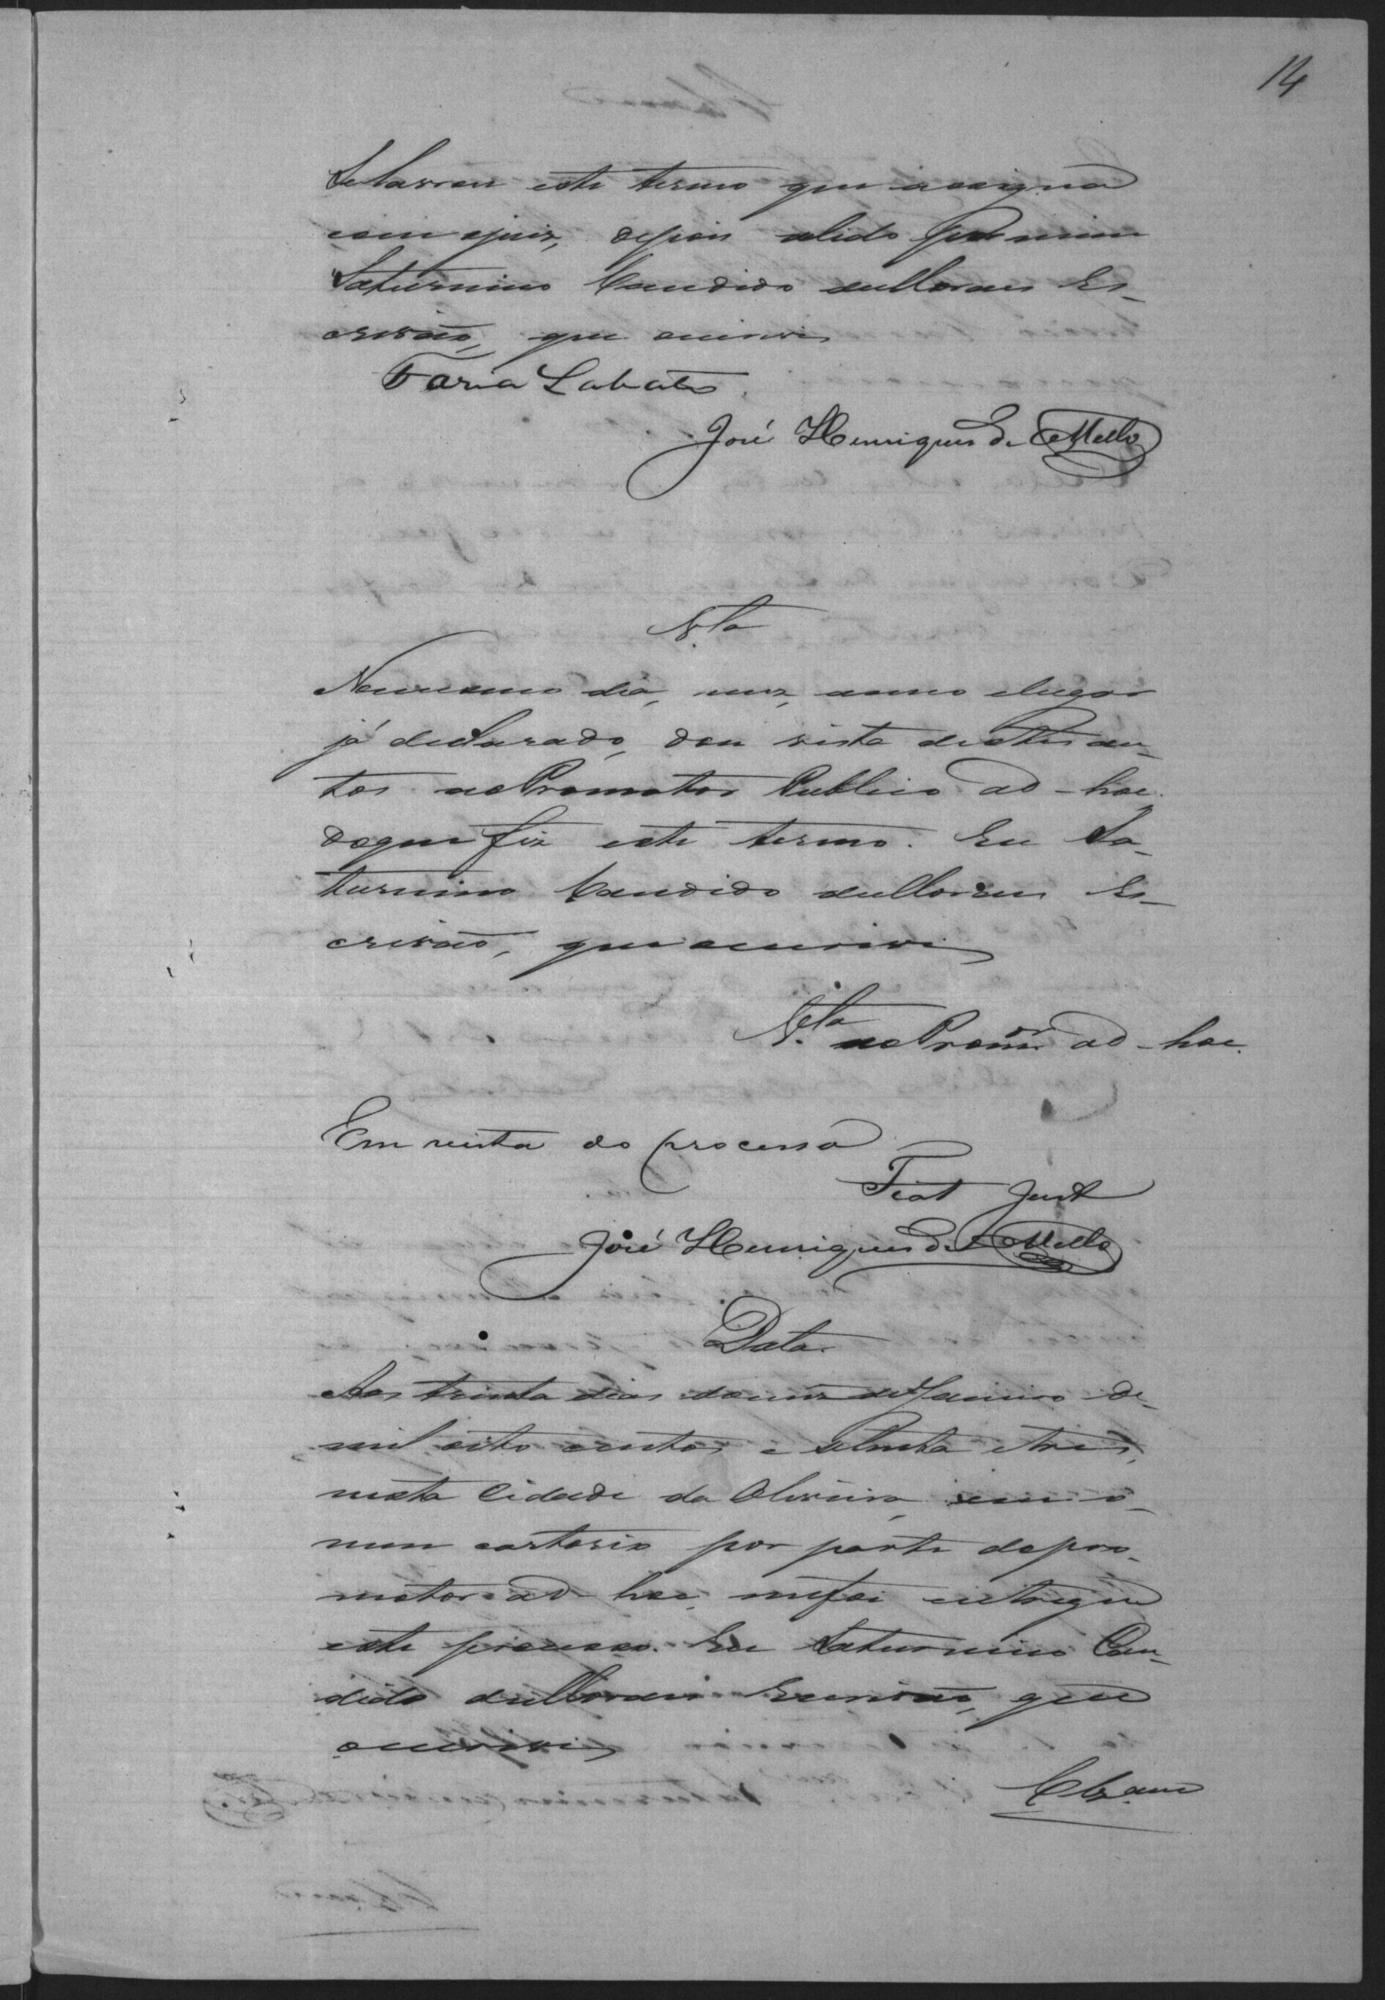 14
Se lavrou este termo que assigna
com o juiz, depois de lido por mim
Saturnino Candido de Moraes Es-
crivão, que escrevi
Faria Lobato.
José Henriques de Mello
V.ta
No mesmo dia, mez, anno e lugar
já declarado, dou vista destes au-
tos ao Promotor Publico ad-hoc.
do que fiz este termo. Eu Sa-
turnino Candido de Moraes Es-
crivão, que escrevi
V.ta ao Prom.or ad-hoc.
Em vista do processo
Fiat Just
José Henriques de Mello
Data
Aos trinta dias do mez de Janeiro de
mil oito centos e setenta e tres,
nesta Cidade da Oliveira, em o
meu cartorio por parte do pro-
motor ad hoc me foi entregue
este processo. Eu Saturnino Can-
dido de Moraes Escrivão, que
escrevi
Clzam